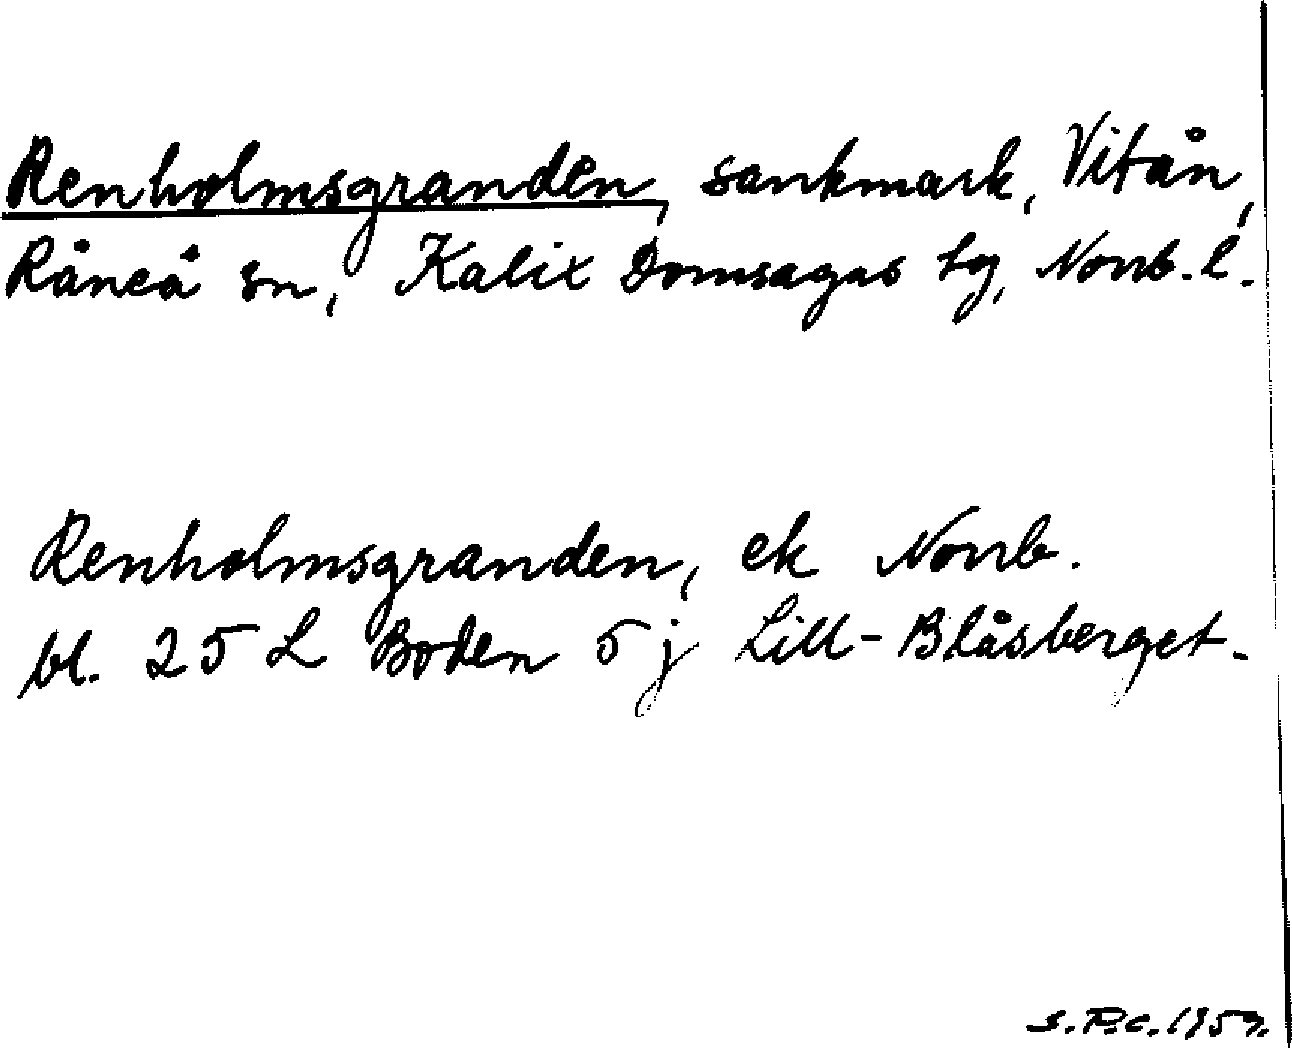 Renholmsgranden, sankmark, Vitån,
Råneå sn, Kalix Domsagas tg, Norrb. l.
Renholmsgranden, ek Norrb.
bl. 25 L Boden 5 j Lill-Blåsberget.